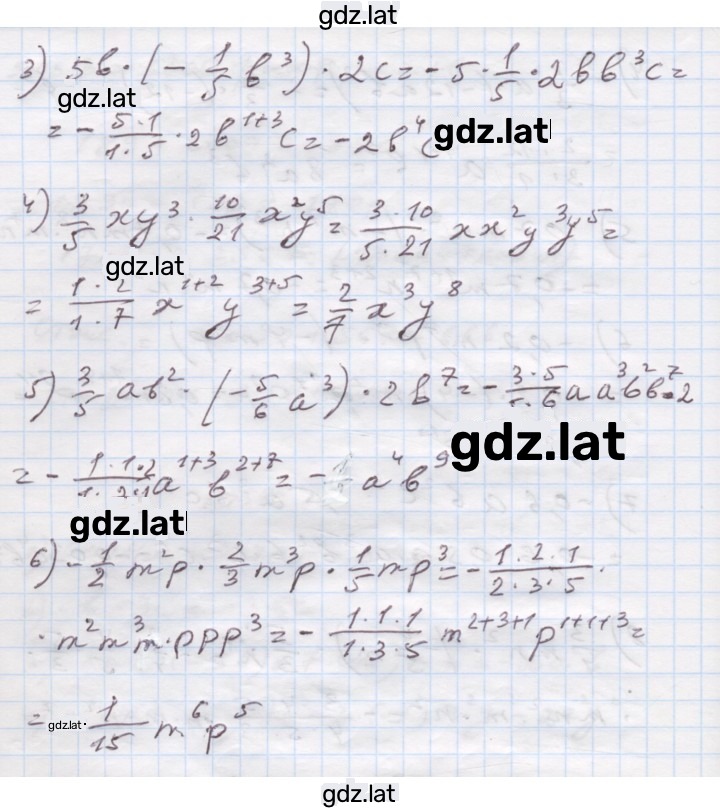 gdz.lat
3) 5b · (- 1/5 b³) · 2c = - 5 · 1/5 · 2bb³c =
gdz.lat
= - 5·1/1·5 · 2b¹⁺³c = -2b⁴c
gdz.lat
4) 3/5 xy³ · 10/21 x²y⁵ = 3·10/5·21 xx²y³y⁵ =
gdz.lat
= 1·2/1·7 x¹⁺² y³⁺⁵ = 2/7 x³y⁸
5) 3/5 ab² · (- 5/6 a³) · 2b⁷ = - 3·5/5·6 aa³b²b⁷·2
gdz.lat
= - 1·1·2/1·2·1 a¹⁺³ b²⁺⁷ = - a⁴b⁹
gdz.lat
6) - 1/2 m²p · 2/3 m³p · 1/5 mp³ = - 1·2·1/2·3·5 ·
· m²m³m · ppp³ = - 1·1·1/1·3·5 m²⁺³⁺¹ p¹⁺¹⁺³ =
= - 1/15 m⁶p⁵
gdz.lat
gdz.lat